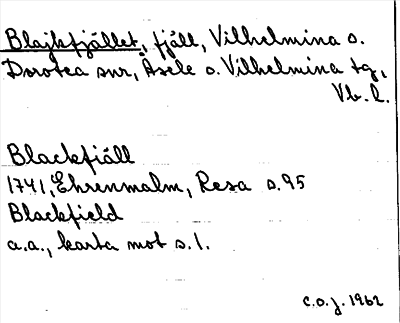 Blajkfjället, fjäll, Vilhelmina o.
Dorotea snr, Åsele o. Vilhelmina tg,
Vb. l.
Blackfiäll
1741, Ehrenmalm, Resa s. 95
Blackfield
a.a., karta mot s. 1.
C.O.J. 1962